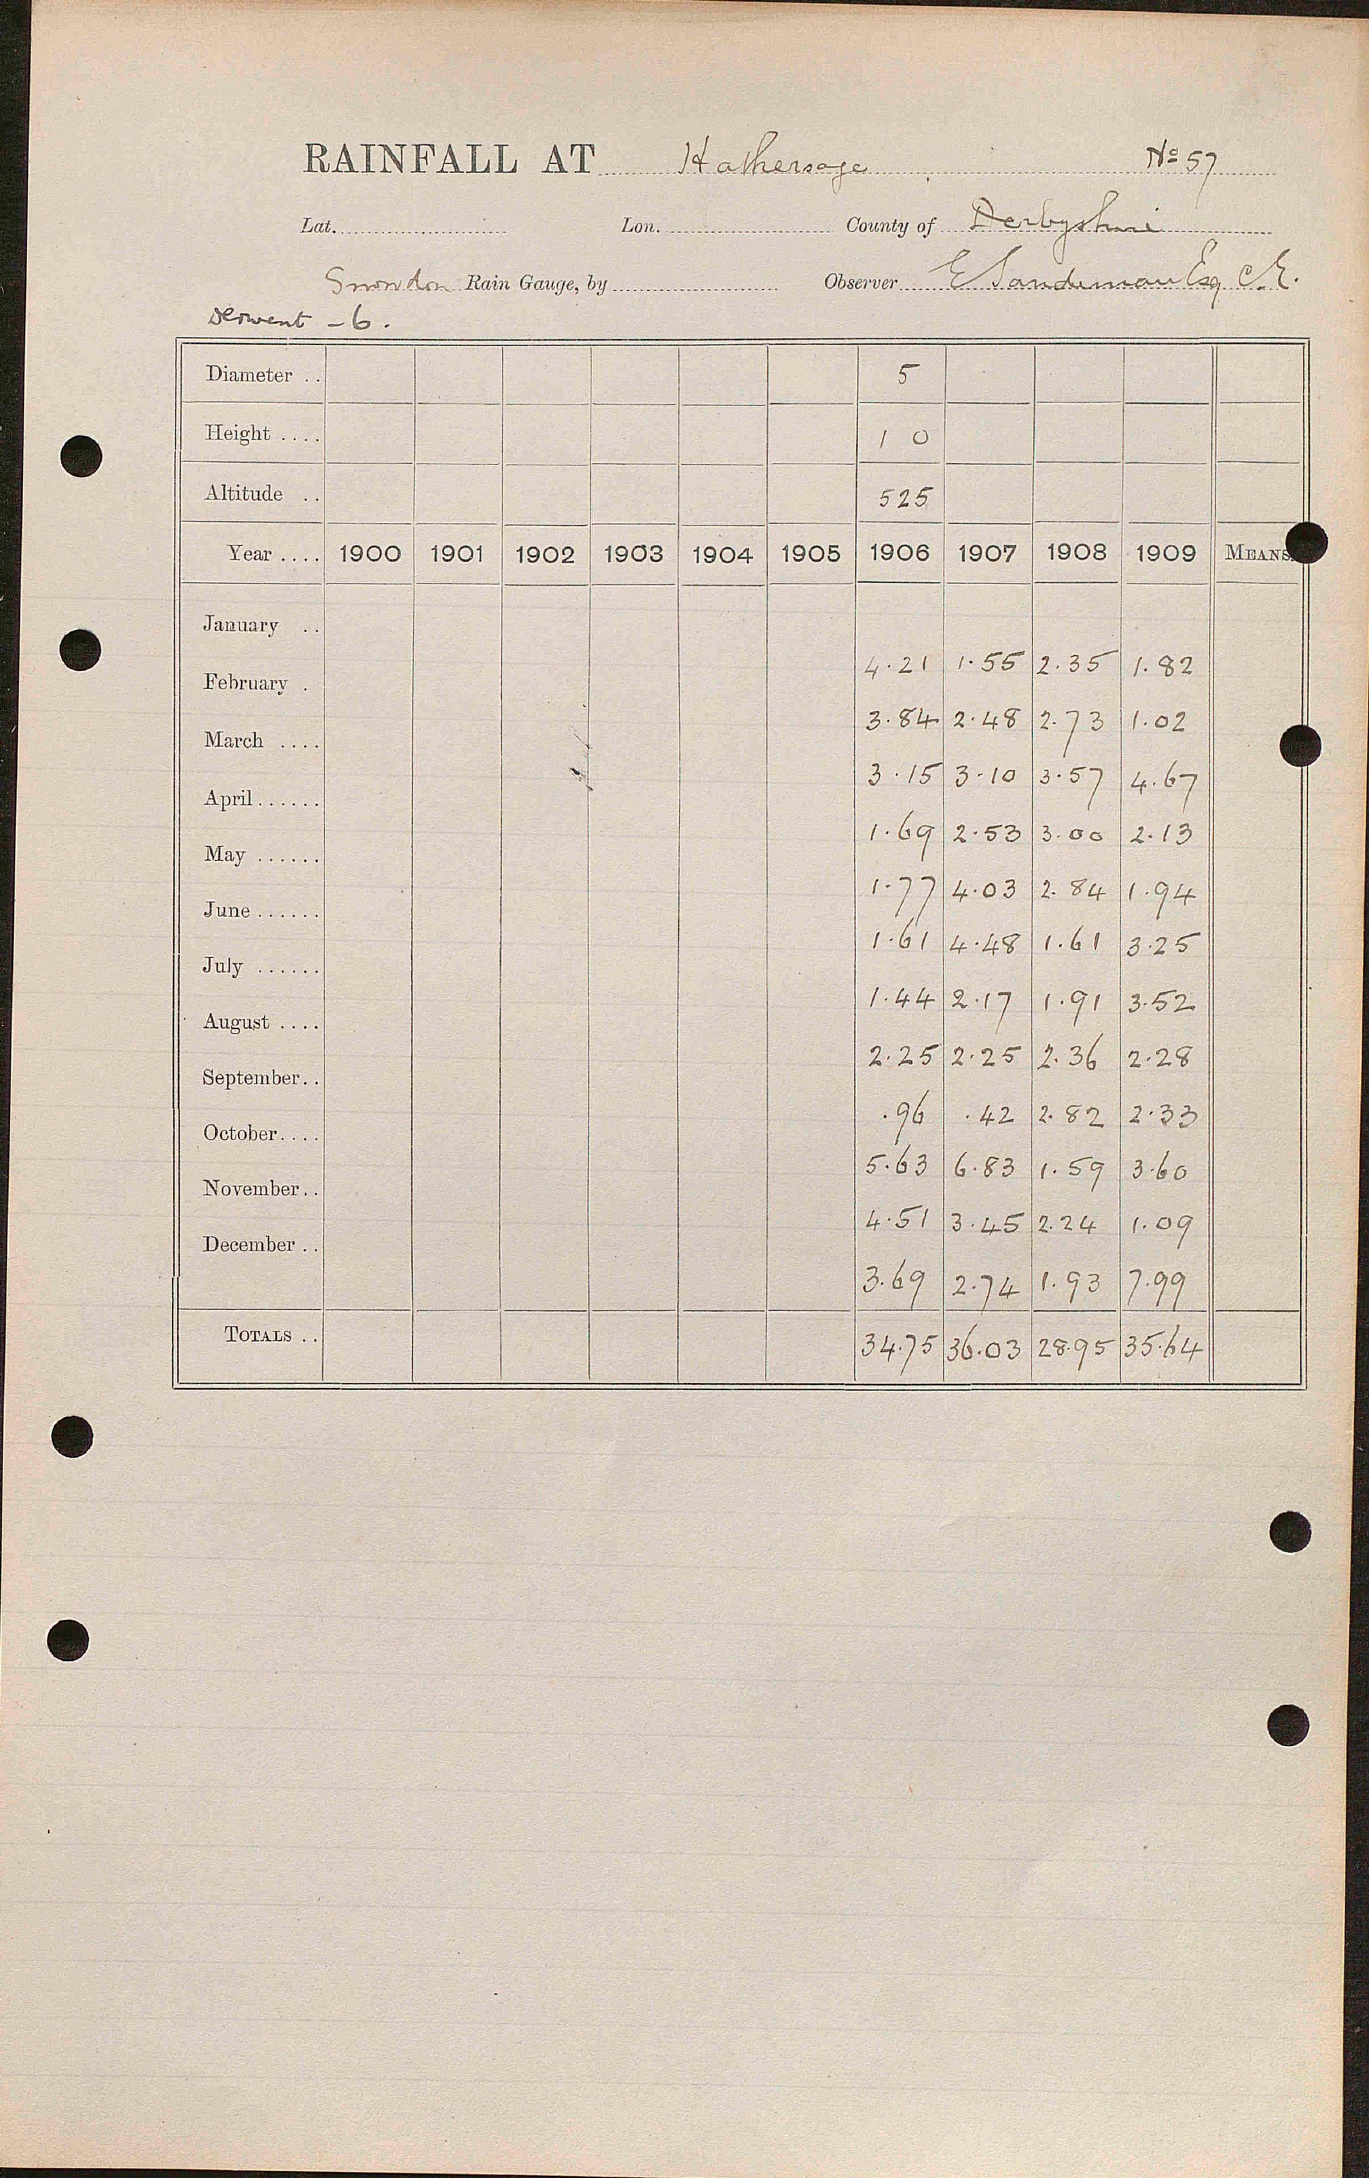 RAINFALL AT Hathersage No 57
Lat. Lon. County of Derbyshire
Snowdon Rain Gauge, by Observer E Sandeman Esq C.E.
Derwent - 6.
Diameter . . 5
Height . . . . 1 0
Altitude . . 525
Year . . . . 1900 1901 1902 1903 1904 1905 1906 1907 1908 1909 MEANS.
January . .
4.21 1.55 2.35 1.82
February .
3.84 2.48 2.73 1.02
March . . . .
3.15 3.10 3.57 4.67
April . . . . . .
1.69 2.53 3.00 2.13
May . . . . . .
1.77 4.03 2.84 1.94
June . . . . . .
1.61 4.48 1.61 3.25
July . . . . . .
1.44 2.17 1.91 3.52
August . . . .
2.25 2.25 2.36 2.28
September . .
.96 .42 2.82 2.33
October . . . .
5.63 6.83 1.59 3.60
November . .
4.51 3.45 2.24 1.09
December . .
3.69 2.74 1.93 7.99
TOTALS . . 34.75 36.03 28.95 35.64